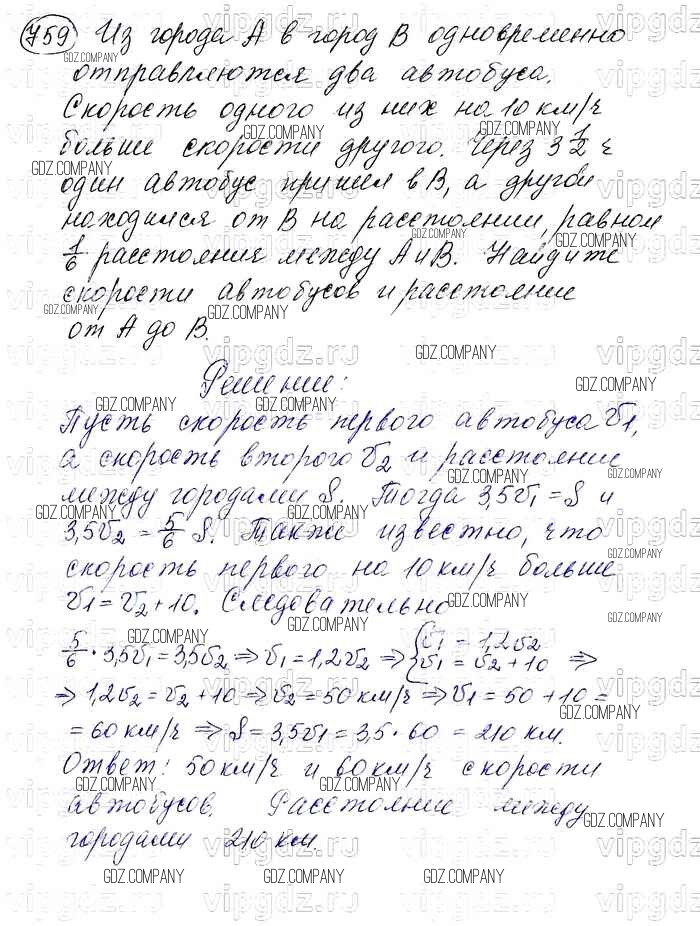 759 Из города А в город В одновременно
отправляются два автобуса.
Скорость одного из них на 10 км/ч
больше скорости другого. Через 3 1/2 ч
один автобус пришел в В, а другой
находился от В на расстоянии, равном
1/6 расстояния между А и В. Найдите
скорости автобусов и расстояние
от А до В.
Решение:
Пусть скорость первого автобуса v1,
а скорость второго v2 и расстояние
между городами S. Тогда 3,5v1 = S и
3,5v2 = 5/6 S. Также известно, что
скорость первого на 10 км/ч больше
v1 = v2 + 10. Следовательно
5/6 · 3,5v1 = 3,5v2 ⇒ v1 = 1,2v2 ⇒ { v1 = 1,2v2 v1 = v2 + 10 ⇒
⇒ 1,2v2 = v2 + 10 ⇒ v2 = 50 км/ч ⇒ v1 = 50 + 10 =
= 60 км/ч ⇒ S = 3,5v1 = 3,5 · 60 = 210 км.
Ответ: 50 км/ч и 60 км/ч скорости
автобусов. Расстояние между
городами 210 км.